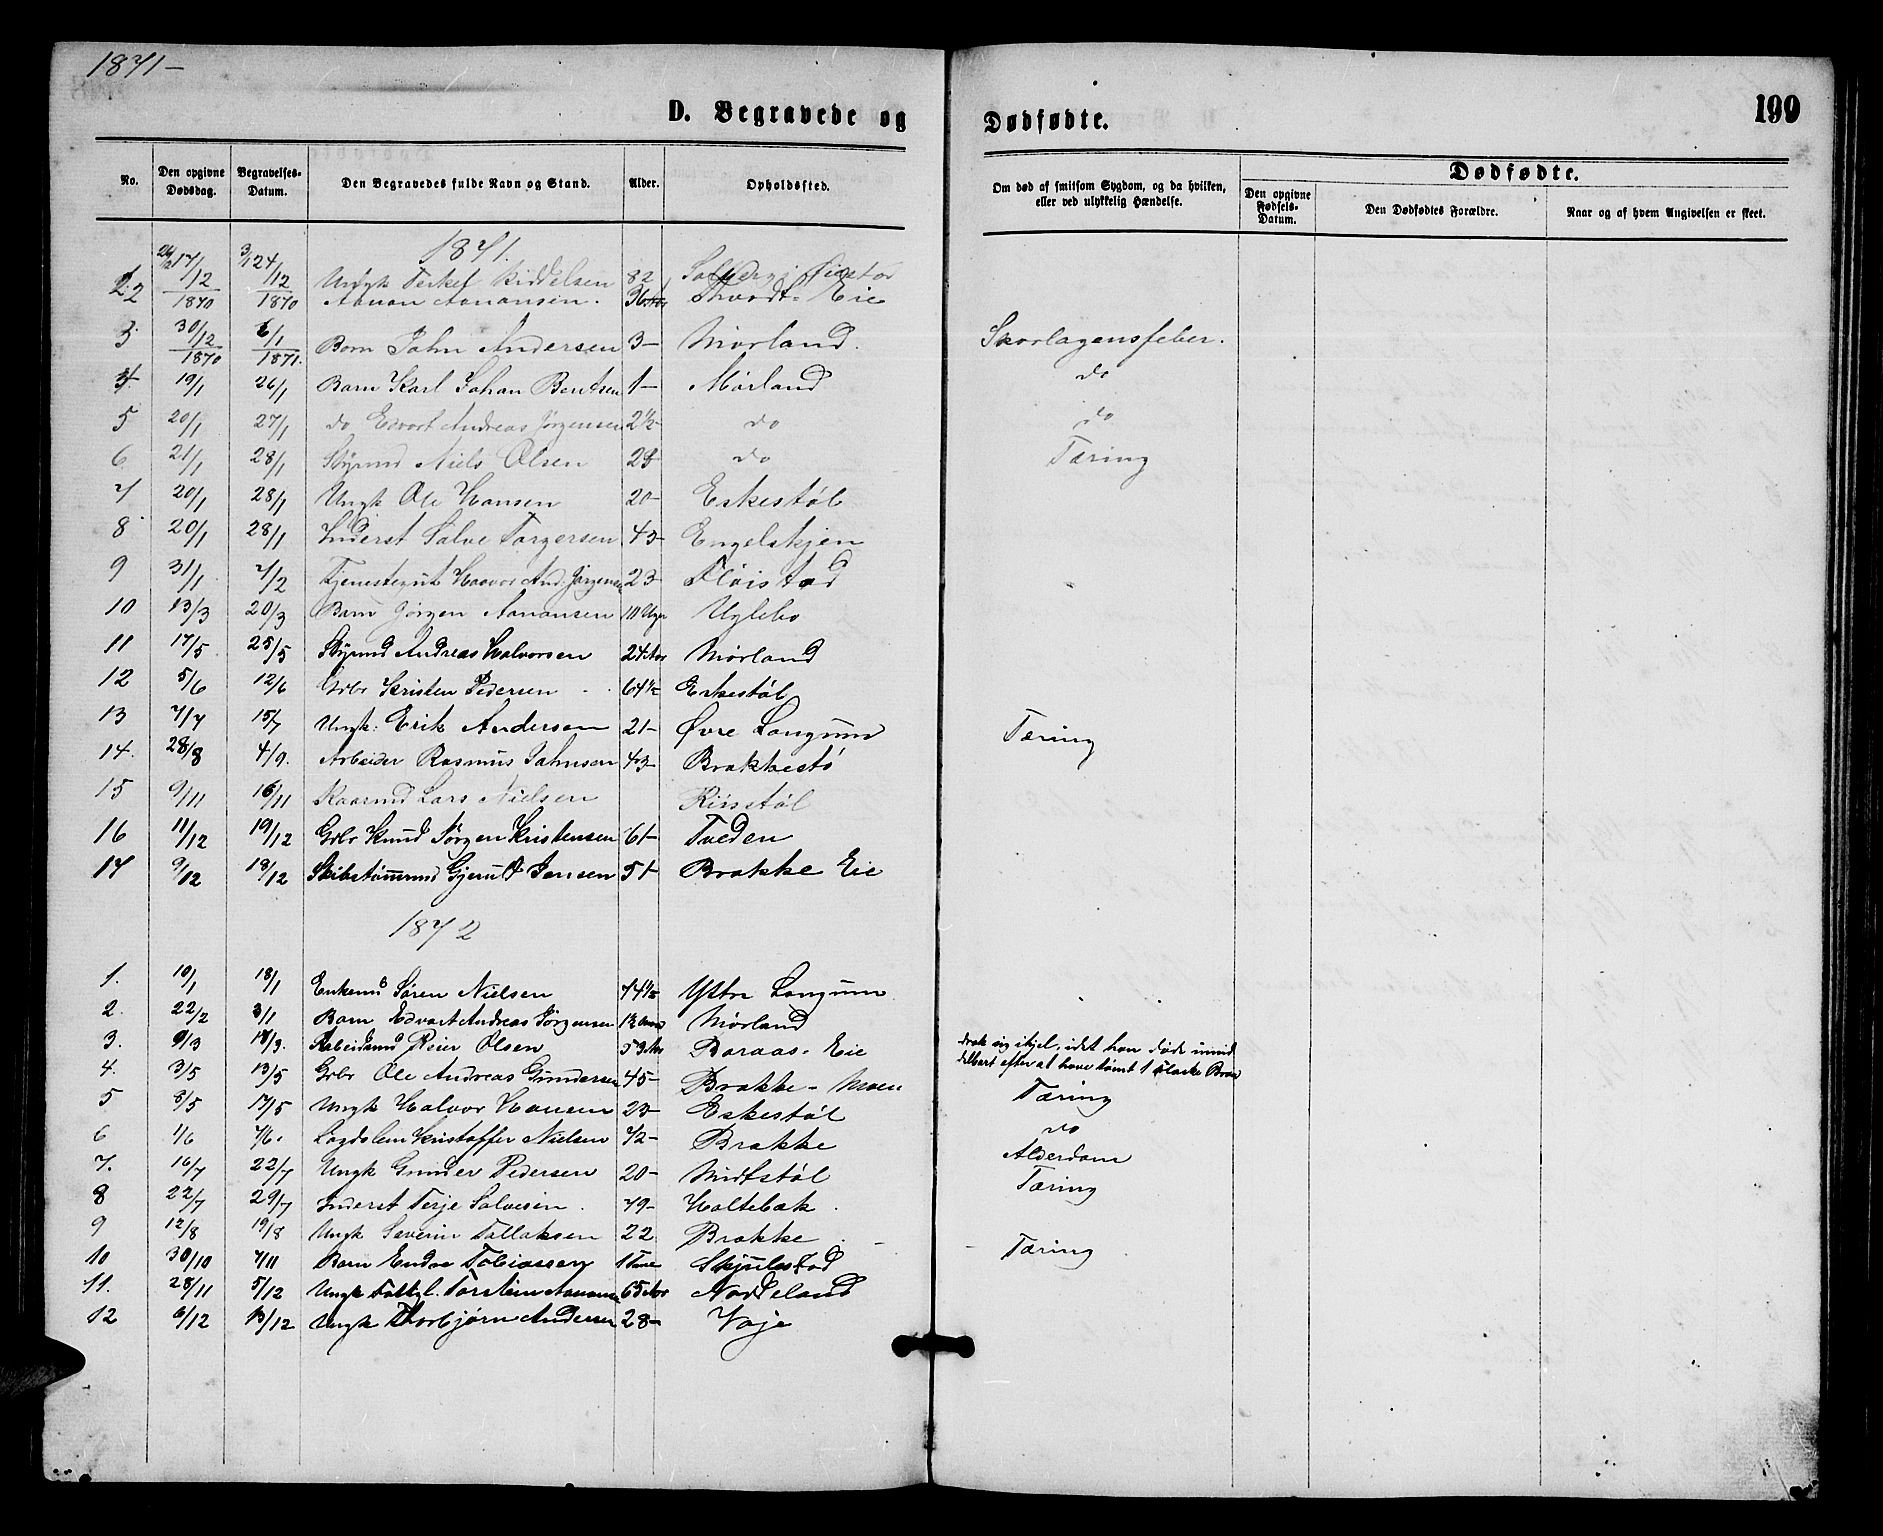 1871-
D. Begravede og Dødfødte. 199
No. Den opgivne Dødsdag. Begravelses-Datum. Den Begravedes fulde Navn og Stand. Alder. Opholdssted. Om død af smitsom Sygdom, og da hvilken, eller ved ulykkelig Hændelse. Dødfødte.
Den opgivne Fødsels-Datum. Den Dødfødtes Forældre. Naar og af hvem Angivelsen er skeet.
1871.
Ungk Terkel Kiddelsen 82
2 17/12 1870 24/12 1870 Aanon Aanonsen. 36 Eie
3 30/12 1870 6/1 1871. Barn John Andersen 3- Mørland. Skarlagensfeber.
4 19/1 26/1 Barn Karl Johan Berntsen 1- Mørland do
5 20/1 27/1 do Edvart Andreas Jørgensen 2½ do do
6 21/1 28/1 Styrmd Niels Olsen 28 do Tæring
7 20/1 28/1 Ungk Ole Hansen 20- Eskestøl
8 20/1 28/1 Inderst Salve Torgersen 43- Engelskjen
9 31/1 7/2 Tjenestegut Haavor And. Jørgensen 23- Fløistad
10 13/3 20/3 Barn Jørgen Aanonsen Uger Uglebo
11 17/5 25/5 Styrmd Andreas Halvorsen 24 Aar Mørland
12 5/6 12/6 Grbr Kristen Pedersen 64½ Eskestøl
13 7/7 15/7 Ungk. Erik Andersen 21- Øvre Longum Tæring
14. 28/8 4/9. Arbeider Rasmus Johnsen 43- Brækkestø
15 9/11 16/11 Kaarmd Lars Nielsen Riisstøl
16 11/12 19/12 Grbr Knud Jørgen Kristensen 61- Tveden
17 9/12 19/12 Skibstømrmd Gjerulf Jensen 51- Brække Eie
1872
1. 10/1 18/1 Enkemd Søren Nielsen 74½ Ytre Longum
2. 22/2 3/1 Barn Edvart Andreas Jørgensen Mørland
3. 9/3 Arbeidsmd Reier Olsen 53 Aar Baraas-Eie drak sig ihjel, idet han døde umid
delbart efter at have tømt 1 Flaske Bræn
4. 3/5 13/5 Grbr Ole Andreas Gundersen 45- Brække-Moen
5 8/5 17/5 Ungk Halvor Hansen 23- Eskestøl Tæring
6 1/6 7/6. Lægdslem Kristoffer Nielsen 72- Brække do
7. 16/7 22/7 Ungk Gunder Pedersen 20- Midtstøl Alderdom
8 22/7 29/7 Inderst Terje Salvesen. 79- Holtebæk. Tæring
9 12/8 19/8 Ungk Severin Tallaksen 22 Brække.
10 30/10 7/11 Barn Endre Tobiassen 1 Time Skjulestad Tæring
11. 28/11 5/12 Ungk Fattgl. Torstein Aanonsen 65 Aar Noddeland
12 6/12 13/12 Ungk Thorbjørn Andersen 28- Vaje